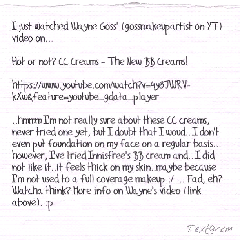 I just watched Wayne Goss' (gossmakeupartist on YT)
video on...
Hot or not? CC Creams - The New BB Creams!
https://www.youtube.com/watch?v=4y8JWRV-
kXw&feature=youtube_gdata_player
..hmmm I'm not really sure about these CC creams,
never tried one yet, but I doubt that I woud.. I don't
even put foundation on my face on a regular basis...
however, I've tried Innisfree's BB cream and.. I did
not like it.. it feels thick on my skin.. maybe because
I'm not used to a full coverage makeup :/ ... Fad, eh?
Watcha think? More info on Wayne's video (link
above). :p